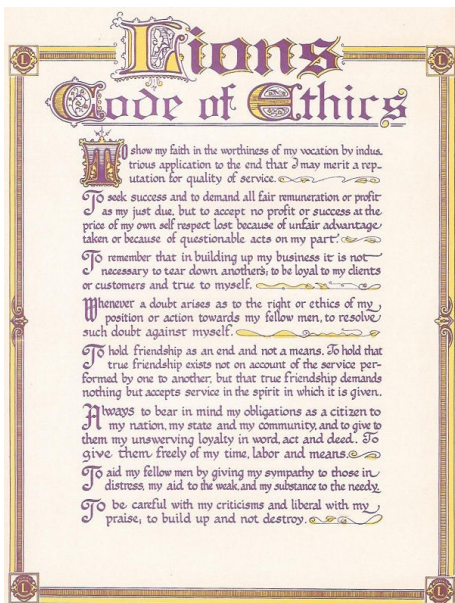 Lions
Code of Ethics
L L
To show my faith in the worthiness of my vocation by indus-
trious application to the end that I may merit a rep-
utation for quality of service.
To seek success and to demand all fair remuneration or profit
as my just due, but to accept no profit or success at the
price of my own self respect lost because of unfair advantage
taken or because of questionable acts on my part.
To remember that in building up my business it is not
necessary to tear down another's; to be loyal to my clients
or customers and true to myself.
Whenever a doubt arises as to the right or ethics of my
position or action towards my fellow men, to resolve
such doubt against myself.
To hold friendship as an end and not a means. To hold that
true friendship exists not on account of the service per-
formed by one to another, but that true friendship demands
nothing but accepts service in the spirit in which it is given.
Always to bear in mind my obligations as a citizen to
my nation, my state and my community, and to give to
them my unswerving loyalty in word, act and deed. To
give them freely of my time, labor and means.
To aid my fellow men by giving my sympathy to those in
distress, my aid to the weak, and my substance to the needy.
To be careful with my criticisms and liberal with my
praise; to build up and not destroy.
L L